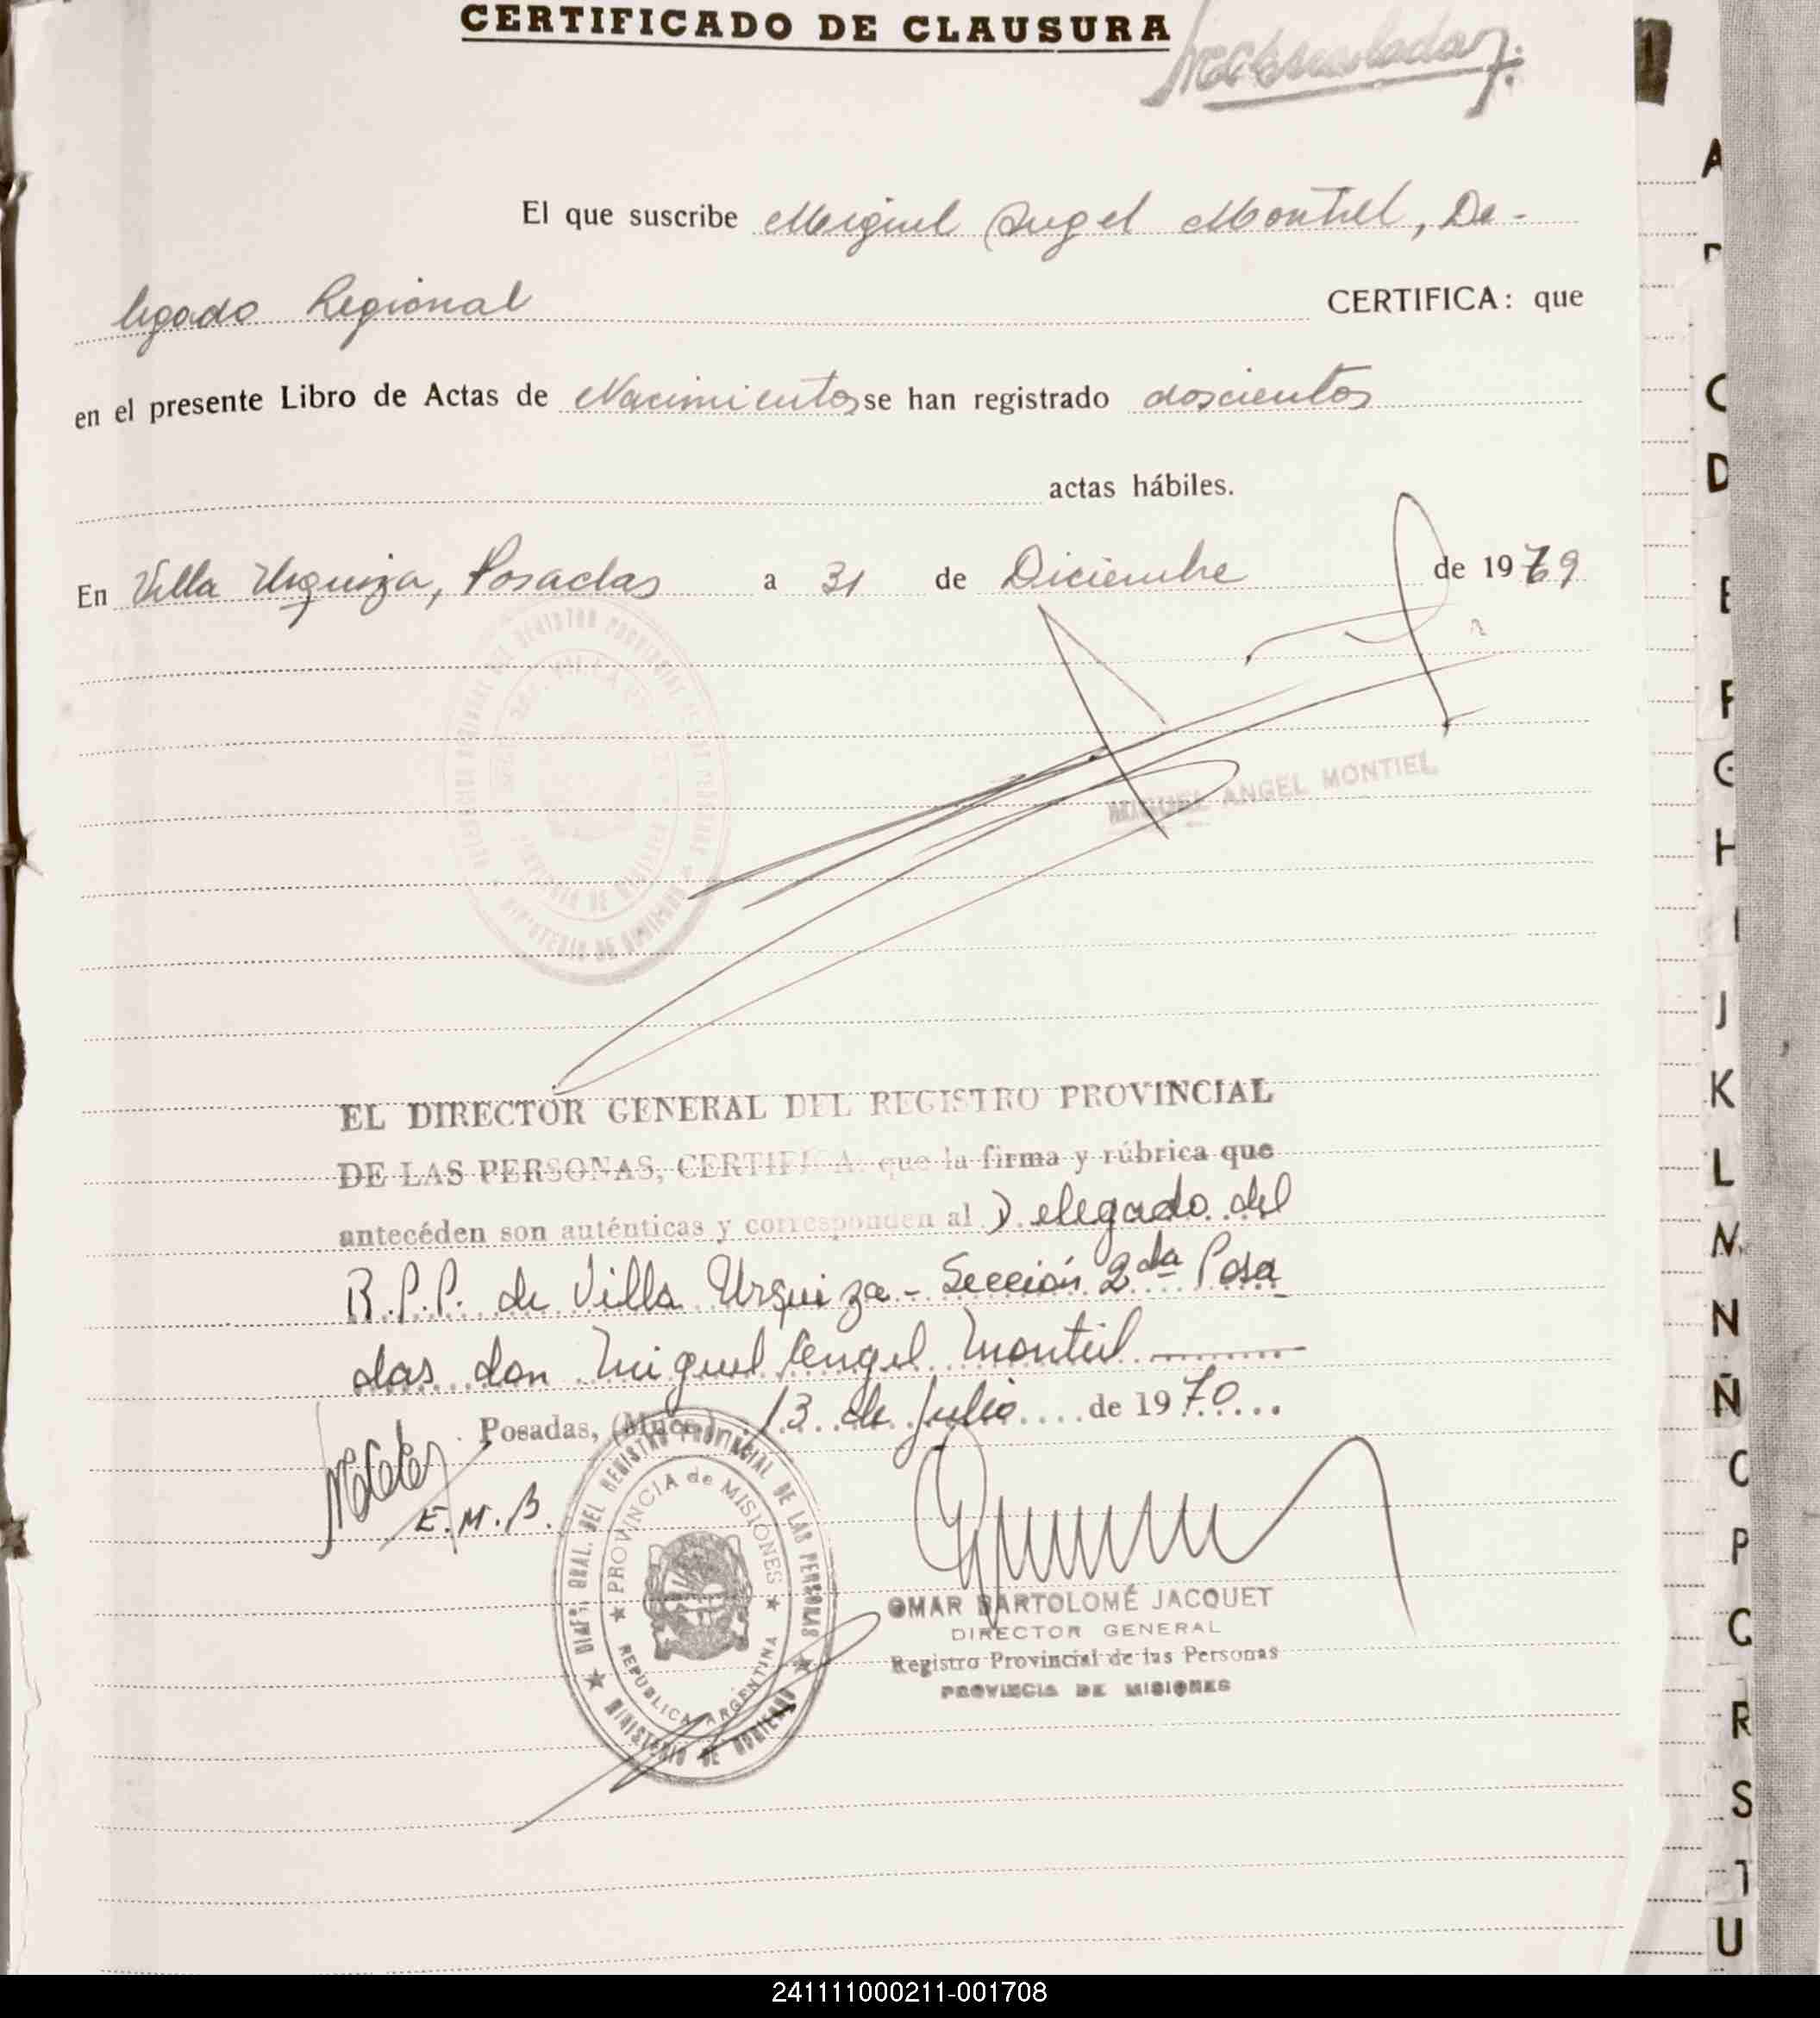 CERTIFICADO DE CLAUSURA
El que suscribe Miguel Angel Montiel, De-
legado Regional CERTIFICA: que
en el presente Libro de Actas de Nacimientos se han registrado doscientos
actas hábiles.
En Villa Urquiza, Posadas a 31 de Diciembre de 1969
MIGUEL ANGEL MONTIEL
EL DIRECTOR GENERAL DEL REGISTRO PROVINCIAL
DE LAS PERSONAS, CERTIFICA: que la firma y rúbrica que
antecéden son auténticas y corresponden al Delegado del
R.P.P. de Villa Urquiza - Sección 2da Posa
das don Miguel Angel Montiel
Posadas, 13 de Julio de 1970
E.M.B.
DIREC. GRAL. DEL REGISTRO PROVINCIAL DE LAS PERSONAS
PROVINCIA de MISIONES
REPUBLICA ARGENTINA
MINISTERIO DE GOBIERNO
OMAR BARTOLOMÉ JACQUET
DIRECTOR GENERAL
Registro Provincial de las Personas
PROVINCIA DE MISIONES
A
C
D
E
F
G
H
I
J
K
L
M
N
Ñ
O
P
Q
R
S
T
U
241111000211-001708